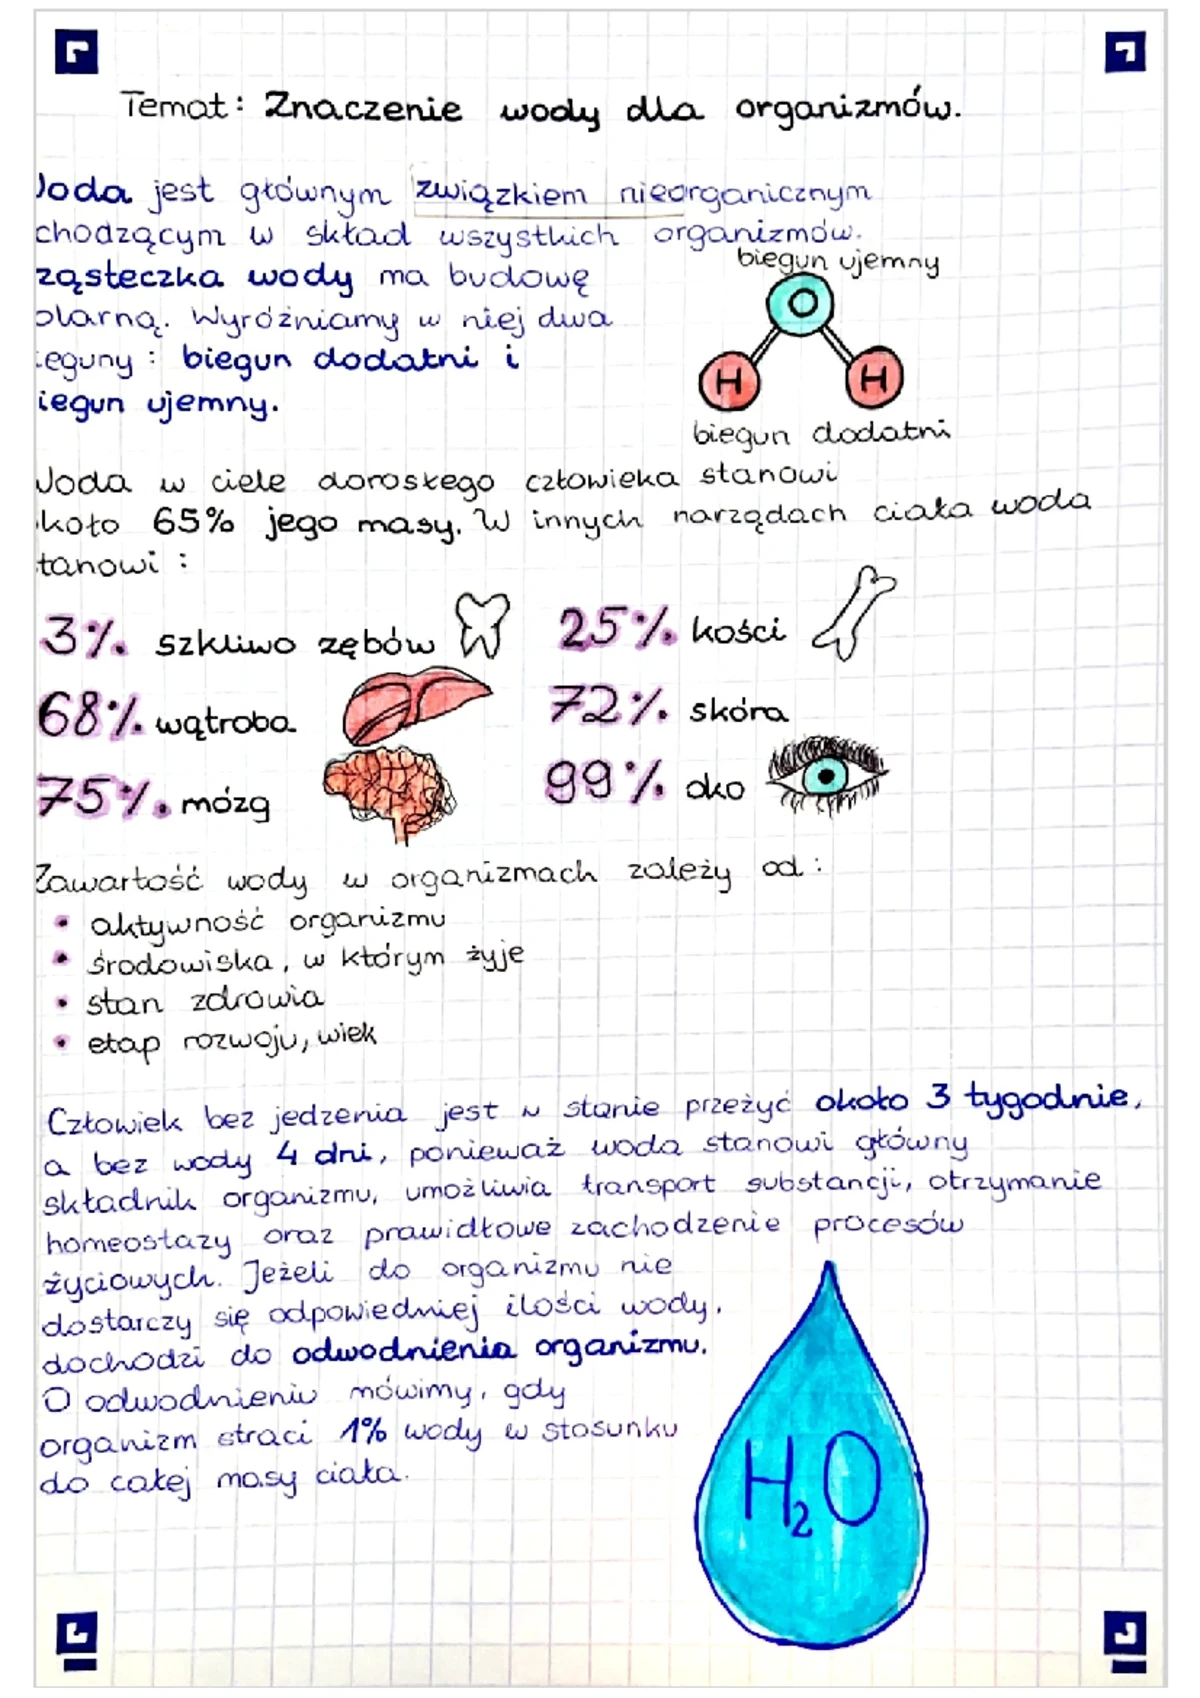 Temat: Znaczenie wody dla organizmów.
oda jest głównym związkiem nieorganicznym
chodzącym w skład wszystkich organizmów.
ząsteczka wody ma budowę
olarną. Wyróżniamy w niej dwa
ieguny: biegun dodatni i
iegun ujemny.
biegun ujemny
O
H H
biegun dodatni
oda w ciele dorosłego człowieka stanowi
koło 65% jego masy. W innych narządach ciała woda
tanowi:
3% szkliwo zębów 25% kości
68% wątroba 72% skóra
75% mózg 99% oko
Zawartość wody w organizmach zależy od:
• aktywność organizmu
• środowiska, w którym żyje
• stan zdrowia
• etap rozwoju, wiek
Człowiek bez jedzenia jest w stanie przeżyć około 3 tygodnie,
a bez wody 4 dni, ponieważ woda stanowi główny
składnik organizmu, umożliwia transport substancji, otrzymanie
homeostazy oraz prawidłowe zachodzenie procesów
życiowych. Jeżeli do organizmu nie
dostarczy się odpowiedniej ilości wody,
dochodzi do odwodnienia organizmu.
O odwodnieniu mówimy, gdy
organizm straci 1% wody w stosunku
do całej masy ciała.
H₂O